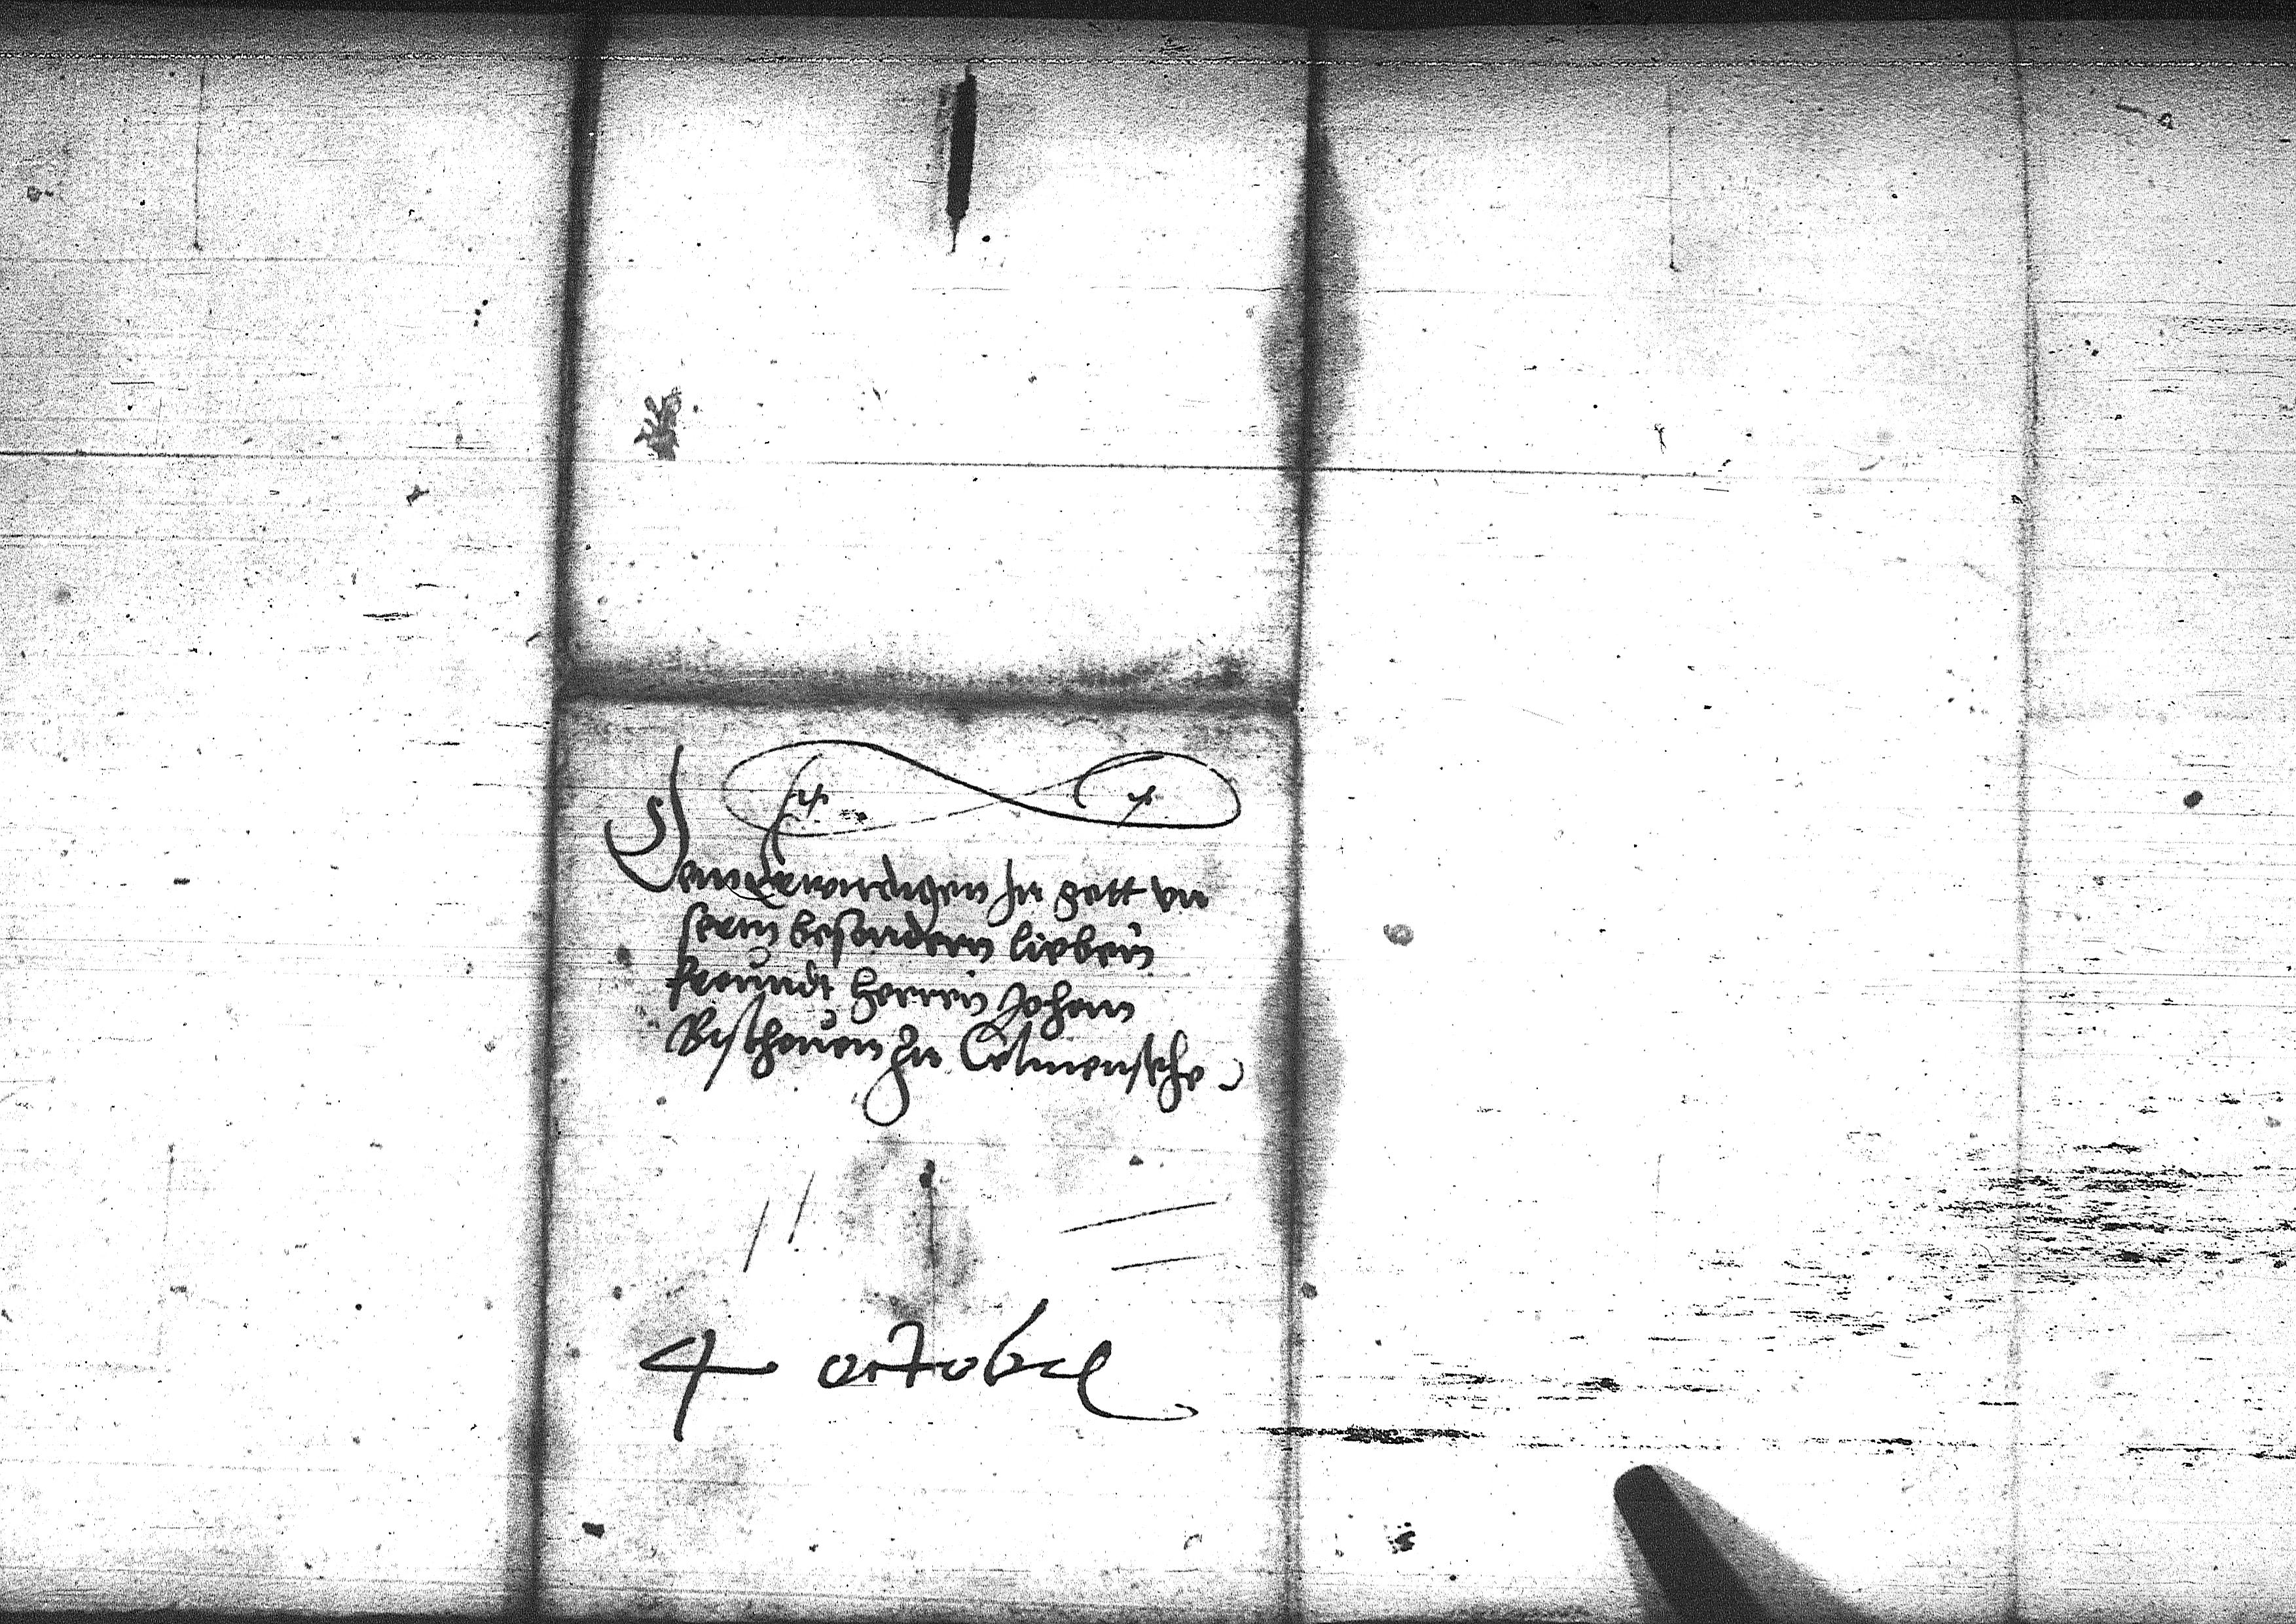 Dem Erwirdigen In gott vn
serm besondern lieben
freundt herren Johan
Bischeuen zu Colmensehe
4 octobr